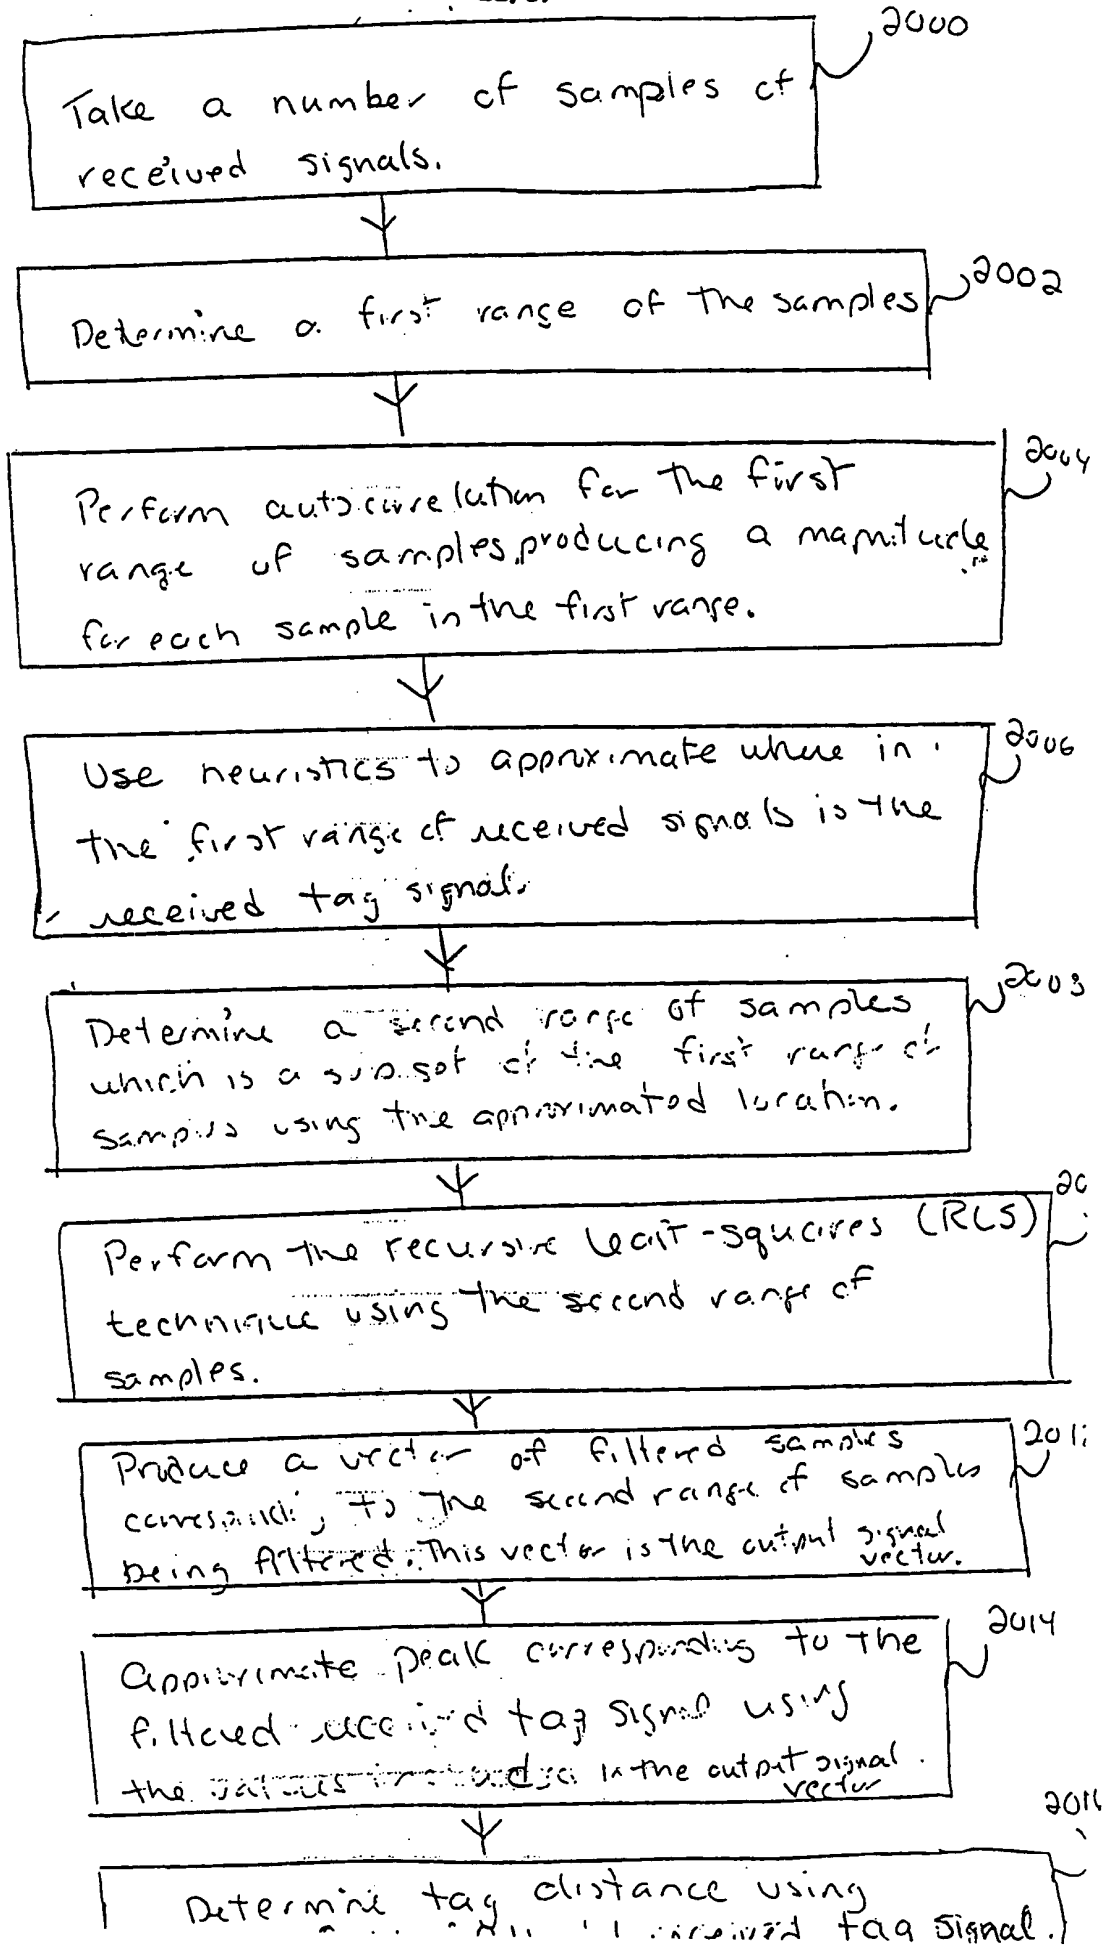 2000
Take a number of samples of
received signals.
2002
Determine a first range of the samples
2004
Perform autocorrelation for the first
range of samples, producing a magnitude
for each sample in the first range.
2006
Use heuristics to approximate where in
the first range of received signals is the
received tag signal.
2008
Determine a second range of samples
which is a subset of the first range of
samples using the approximated location.
20
Perform the recursive least-squares (RLS)
technique using the second range of
samples.
201
Produce a vector of filtered samples
corresponding to the second range of samples
being filtered. This vector is the output signal
vector.
2014
Approximate peak corresponding to the
filtered received tag signal using
the values in the output signal
vector
2016
Determine tag distance using
received tag signal.